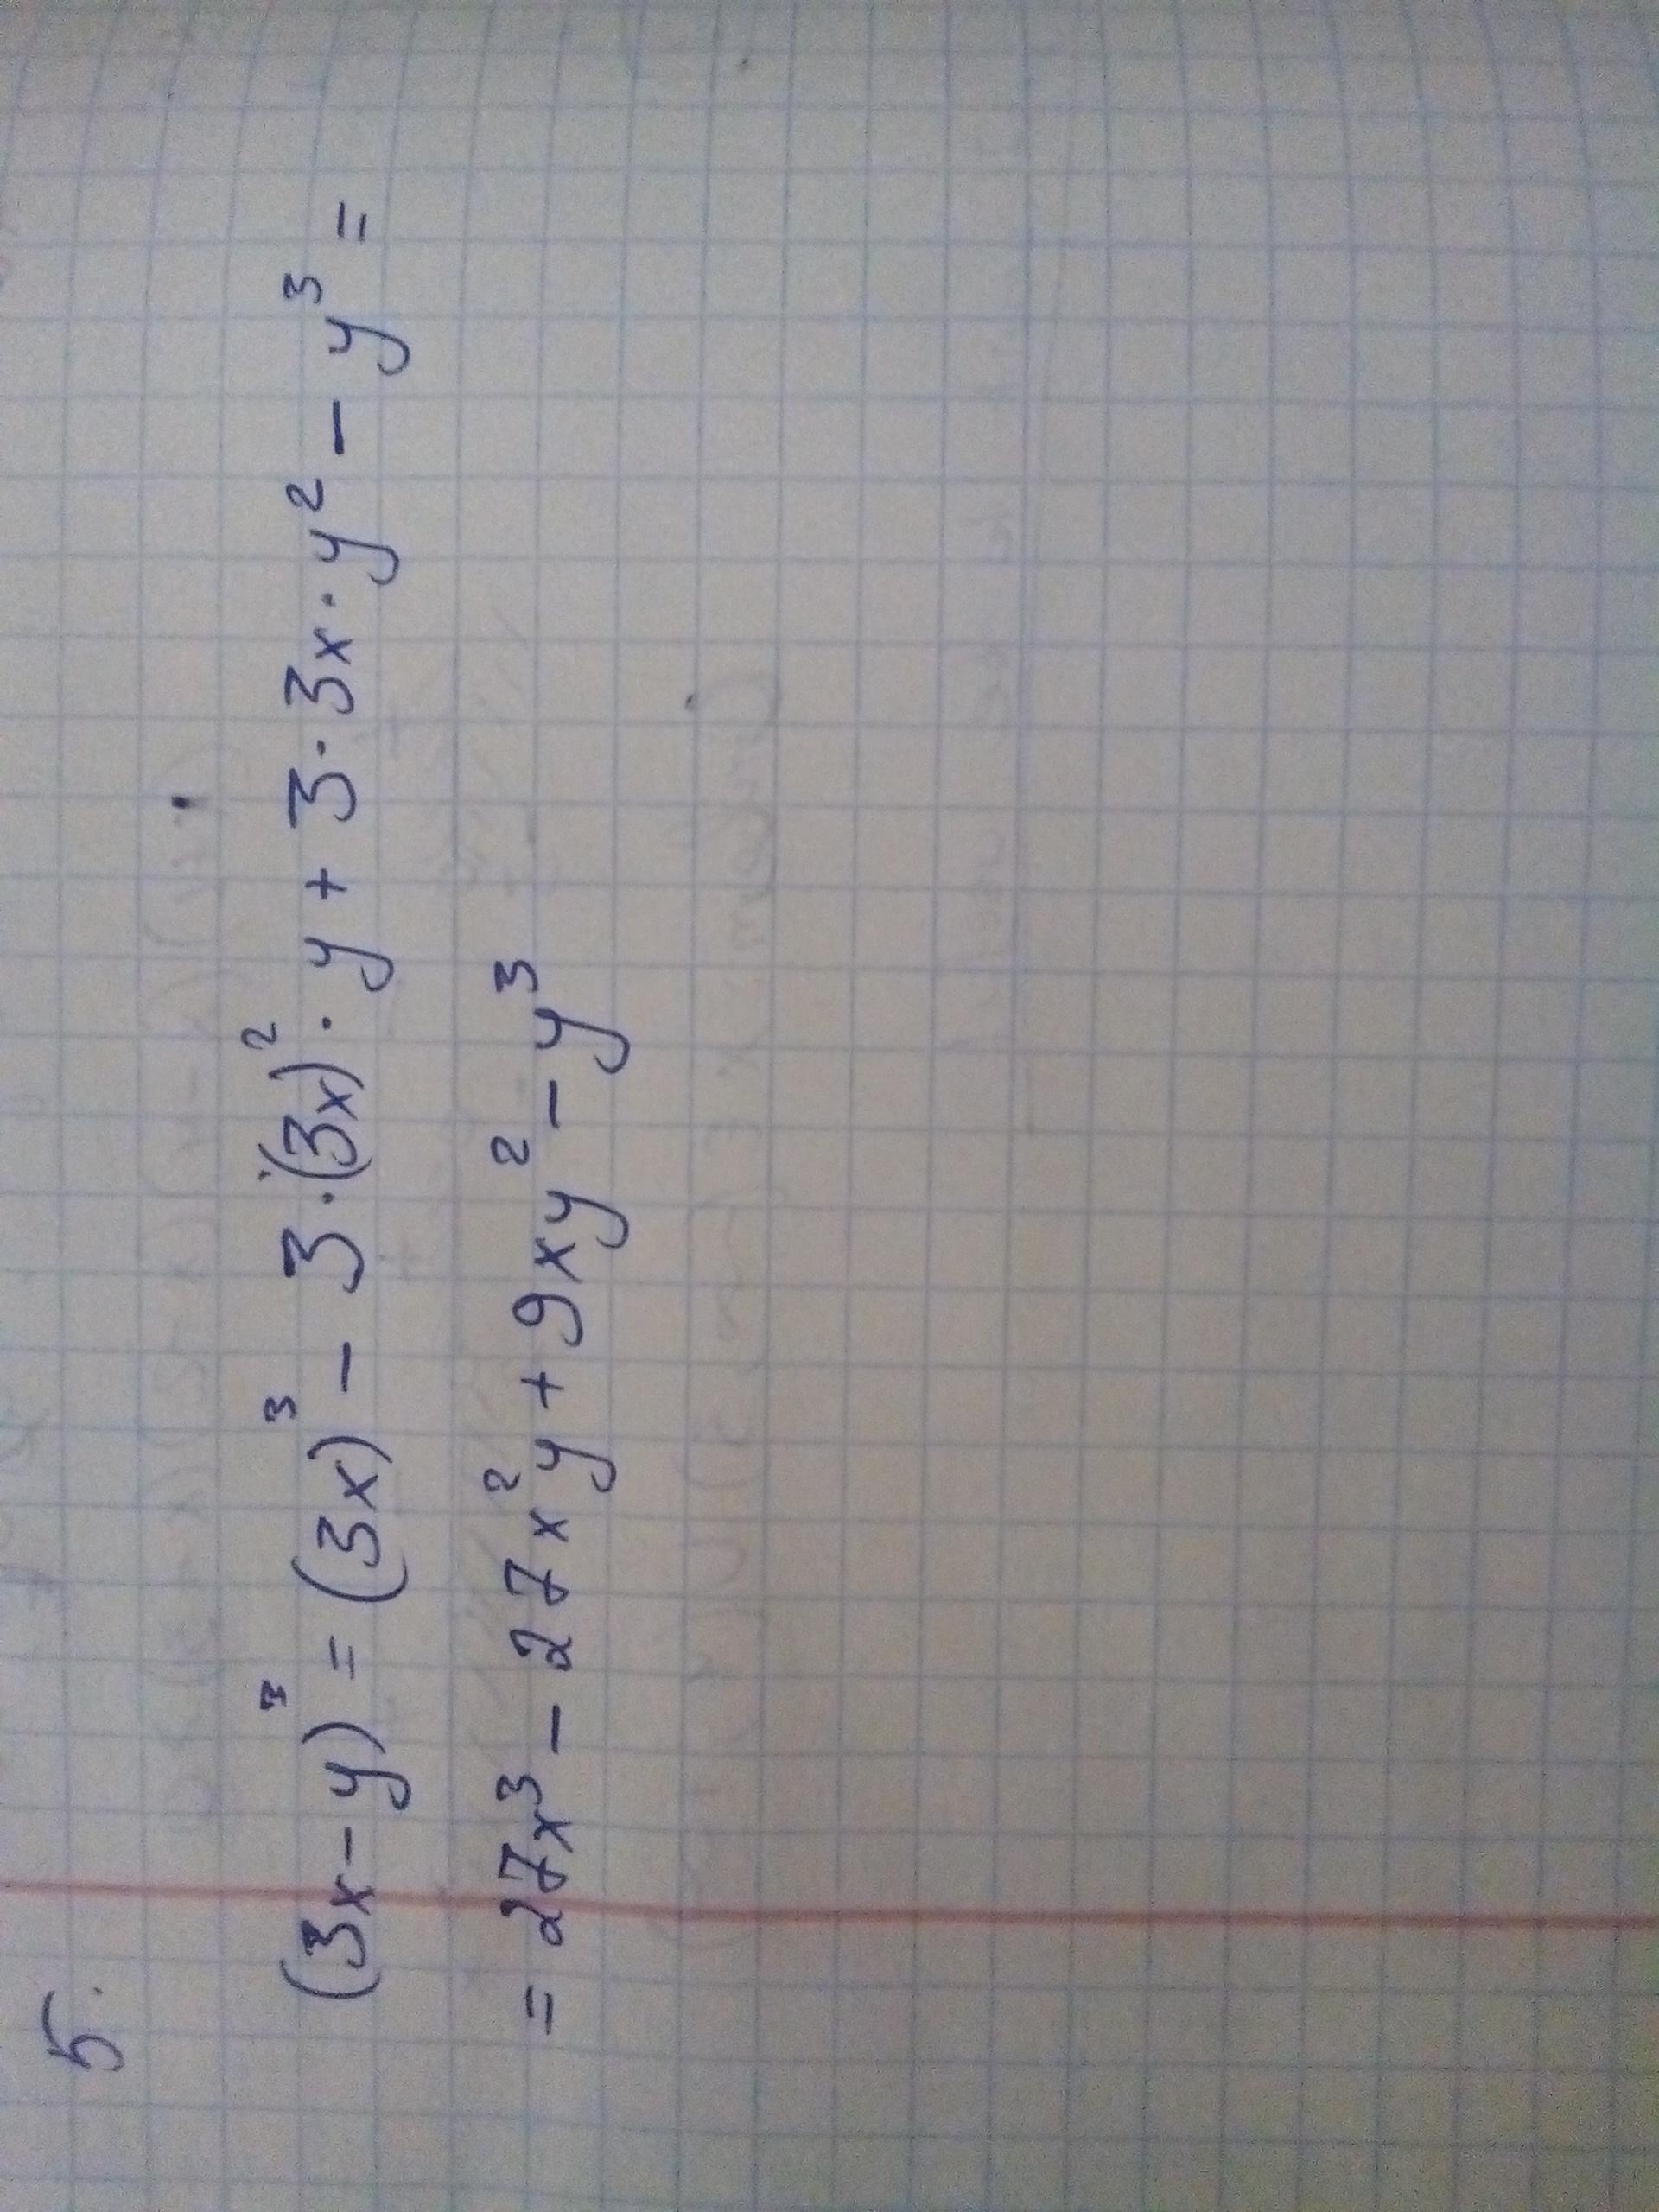 5.
(3x-y)³ = (3x)³ - 3·(3x)²·y + 3·3x·y² - y³ =
= 27x³ - 27x²y + 9xy² - y³